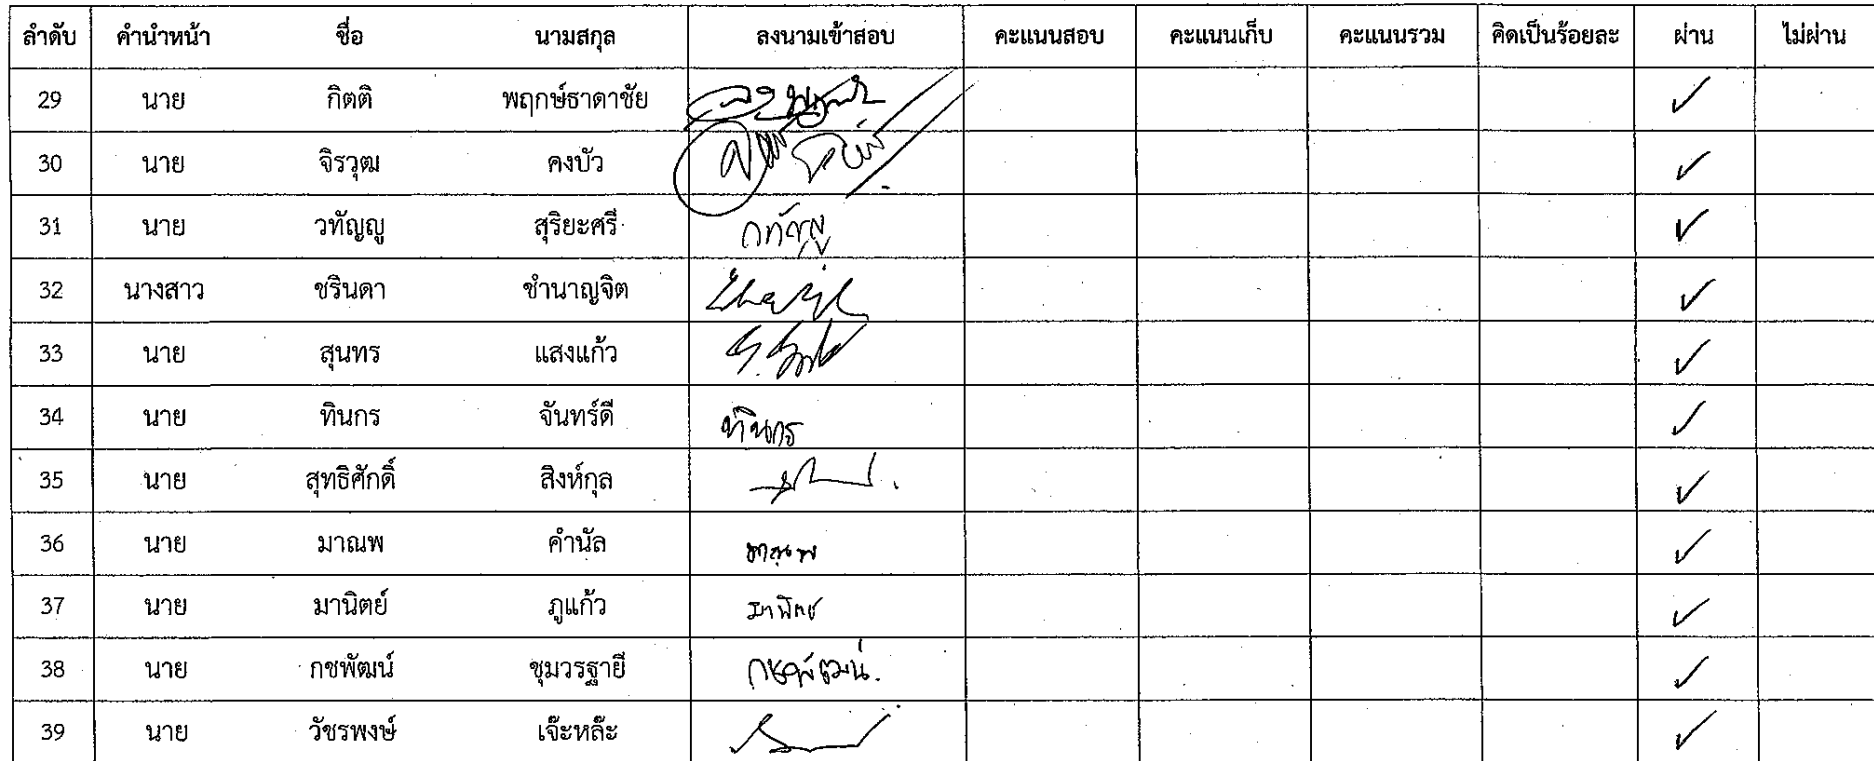 ลำดับ คำนำหน้า ชื่อ นามสกุล ลงนามเข้าสอบ คะแนนสอบ คะแนนเก็บ คะแนนรวม คิดเป็นร้อยละ ผ่าน ไม่ผ่าน
29 นาย กิตติ พฤกษ์ธาดาชัย ✓
30 นาย จิรวุฒ คงบัว ✓
31 นาย วทัญญู สุริยะศรี วทัญญู ✓
32 นางสาว ชรินดา ชำนาญจิต ✓
33 นาย สุนทร แสงแก้ว ✓
34 นาย ทินกร จันทร์ดี ทินกร ✓
35 นาย สุทธิศักดิ์ สิงห์กุล ✓
36 นาย มาณพ คำนัล มาณพ ✓
37 นาย มานิตย์ ภูแก้ว มานิตย์ ✓
38 นาย กชพัฒน์ ชุมวรฐายี กชพัฒน์. ✓
39 นาย วัชรพงษ์ เจ๊ะหล๊ะ ✓